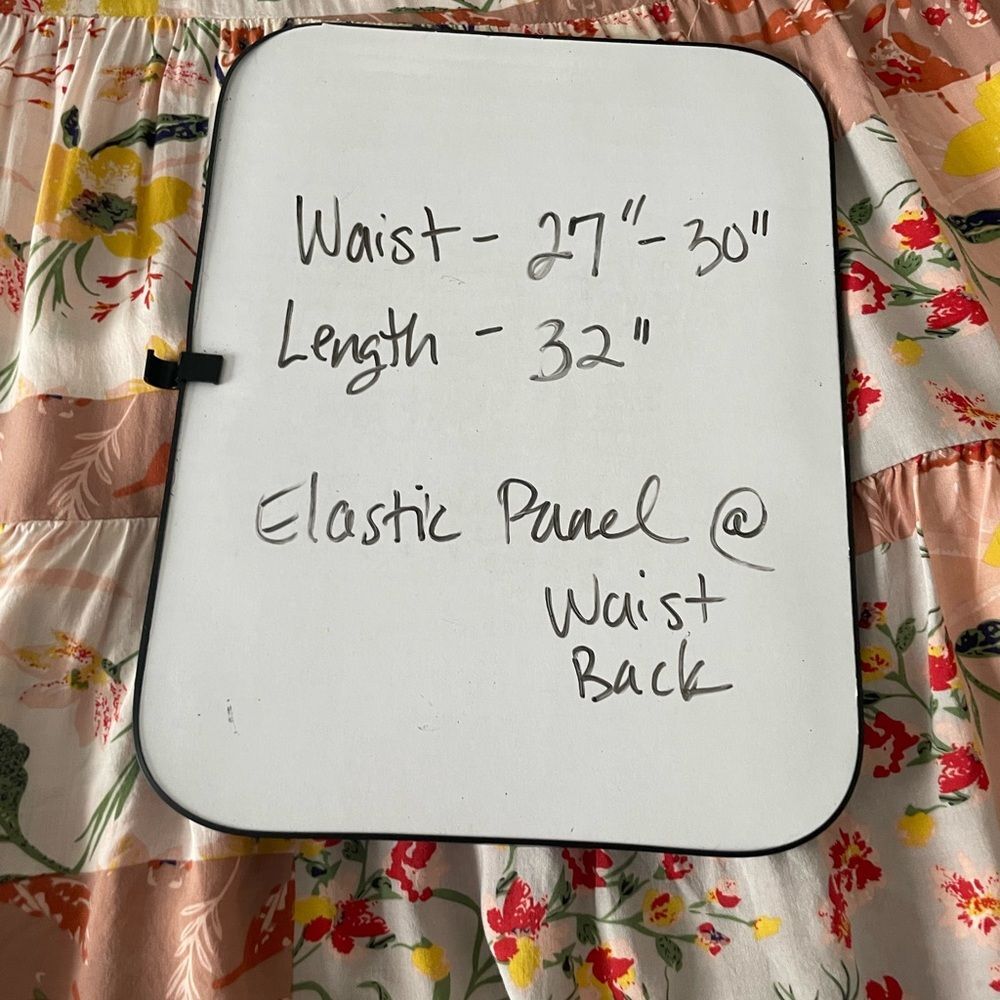 Waist - 27" - 30"
Length - 32"
Elastic Panel @
Waist
Back